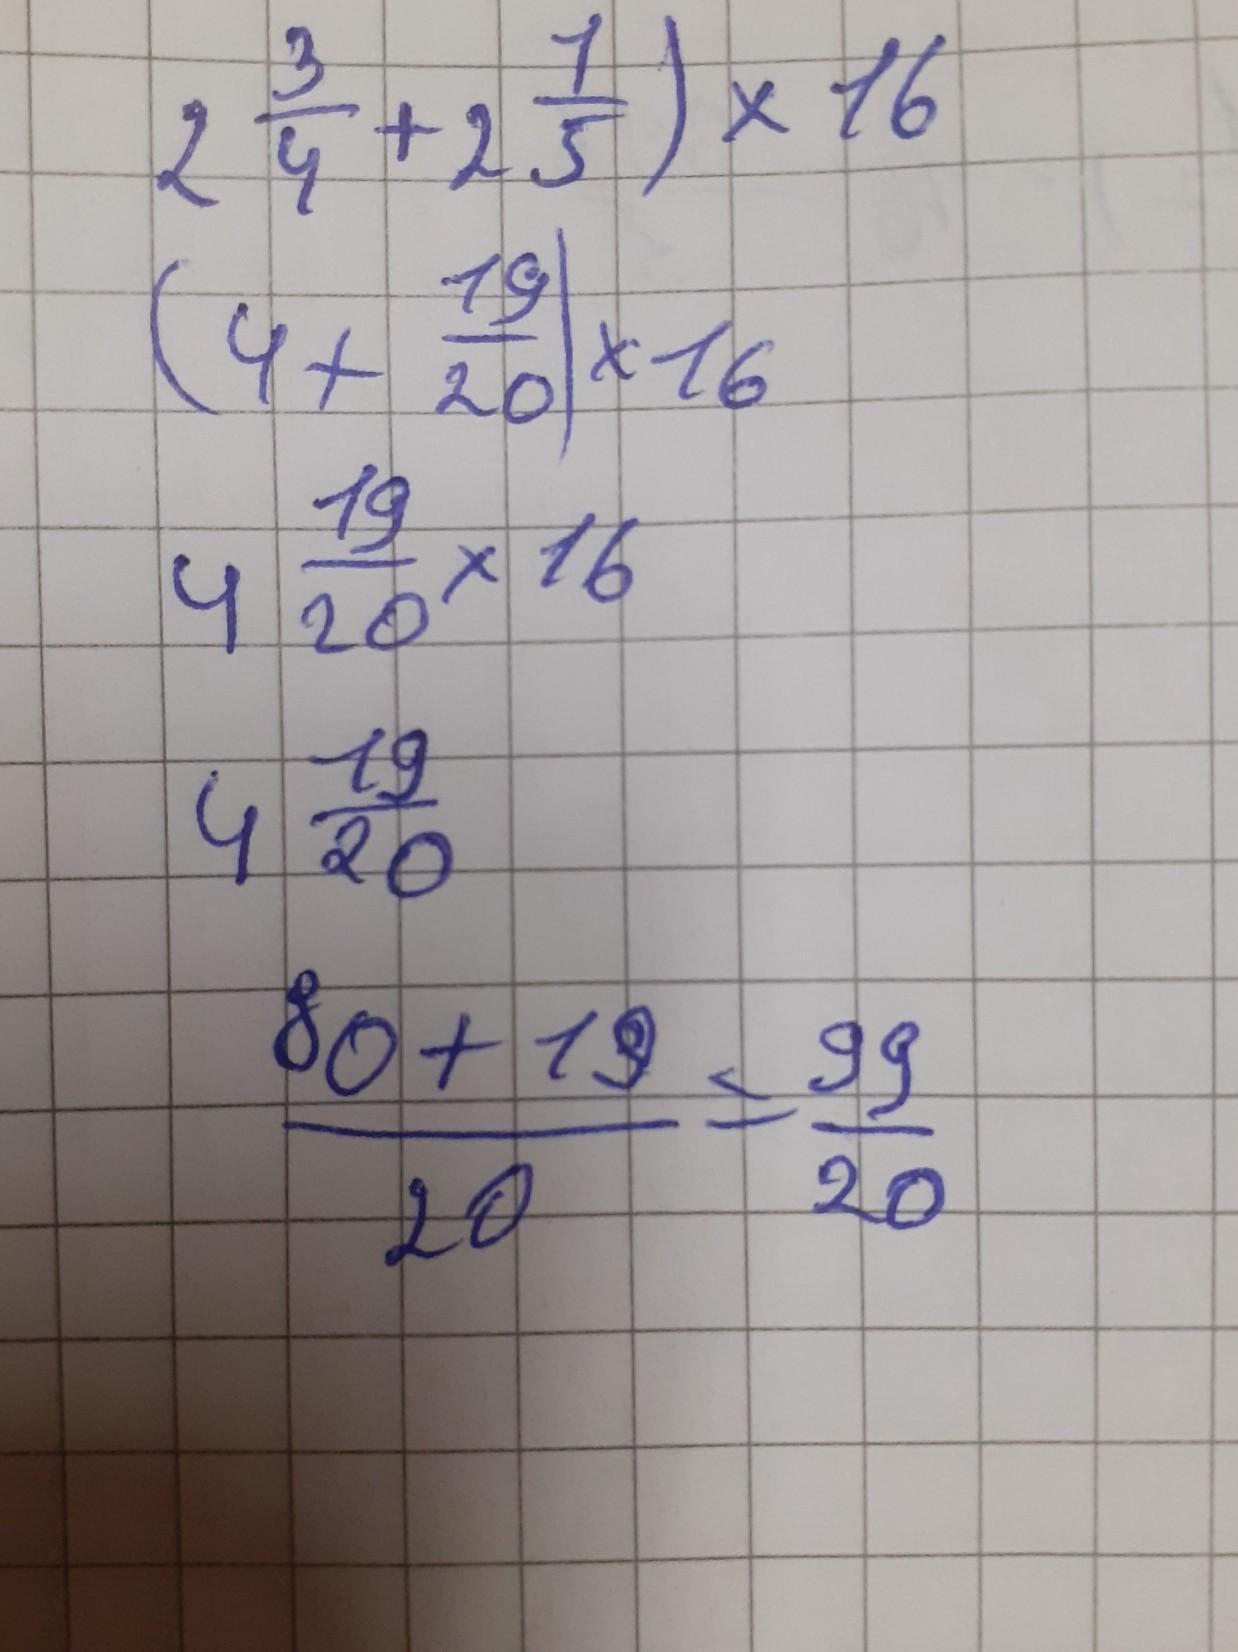 2 3/4 + 2 1/5 ) × 16
( 4 + 19/20 | × 16
4 19/20 × 16
4 19/20
80 + 19 / 20 = 99/20